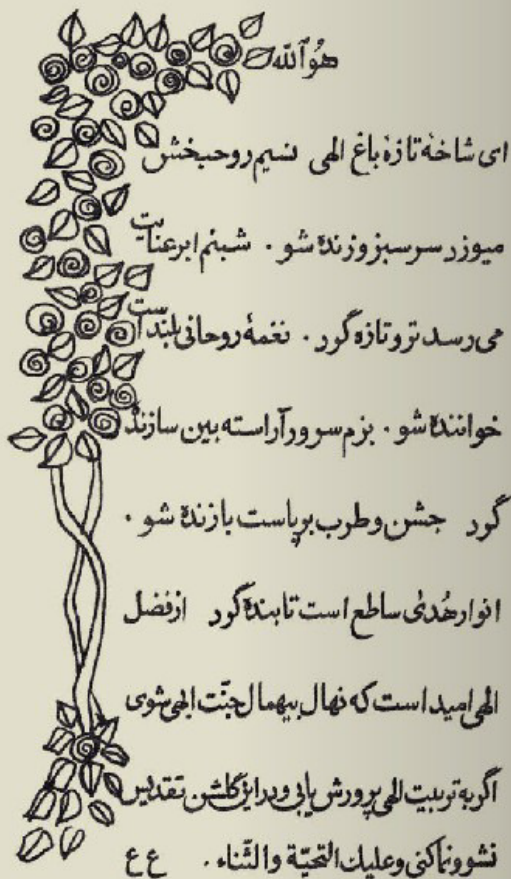 هُوَاللّٰه
ای شاخهٔ تازهٔ باغ الهی نسیم روحبخش
میوزد سرسبز و زنده شو . شبنم ابر عنایت
می رسد تر و تازه گرد . نغمهٔ روحانی بلند است
خواننده شو . بزم سرور آراسته بین سازنده
گرد جشن و طرب برپاست بازنده شو .
انوار هُدیٰ ساطع است تابنده گرد از فضل
الهی امید است که نهال بیهمال جنّت ابهی شوی
اگر به تربیت الهی پرورش یابی و در این گلشن تقدیس
نشو و نما کنی و علیک التحیّة والثّناء . ع ع